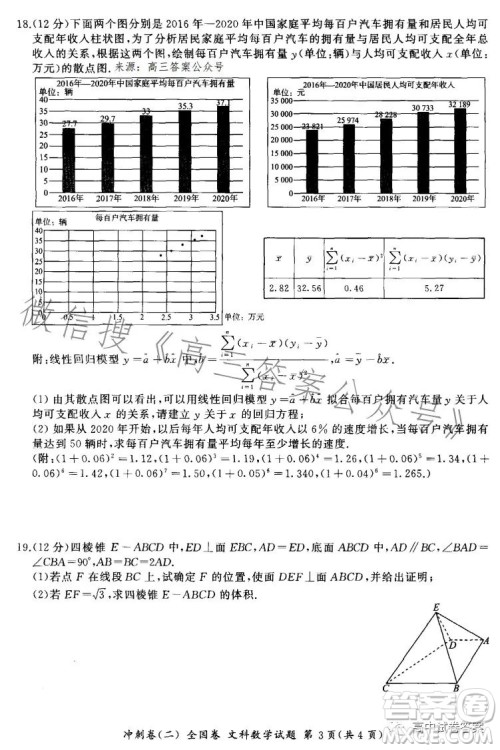 18.(12 分)下面两个图分别是 2016 年—2020 年中国家庭平均每百户汽车拥有量和居民人均可
支配年收入柱状图,为了分析居民家庭平均每百户汽车拥有量与居民人均可支配全年总
收入的关系,根据这两个图,绘制每百户汽车拥有量 y(单位:辆)与人均可支配收入 x(单位:
万元)的散点图. 来源:高三答案公众号
单位:辆 2016年—2020年中国家庭平均每百户汽车拥有量
40
35
30
25
20
15
10
5
0
27.7 29.7 33 35.3 37.1
2016年 2017年 2018年 2019年 2020年
单位:元 2016年—2020年中国居民人均可支配年收入
35 000
30 000
25 000
20 000
15 000
10 000
5 000
0
23 821 25 974 28 228 30 733 32 189
2016年 2017年 2018年 2019年 2020年
单位:辆 每百户汽车拥有量
40
35
30
25
20
15
10
5
0 0.5 1 1.5 2 2.5 3 3.5 单位:万元
x̄ ȳ ∑(i=1→n)(xᵢ-x̄)² ∑(i=1→n)(xᵢ-x̄)(yᵢ-ȳ)
2.82 32.56 0.46 5.27
附:线性回归模型
(1) 由其散点图可以看出,可以用线性回归模型 y=â+b̂x 拟合每百户拥有汽车量 y 关于人
均可支配年收入的关系,请建立 y 关于 x 的回归方程;
(2) 如果从 2020 年开始,以后每年人均可支配年收入以 6% 的速度增长,当每百户汽车拥有
量达到 50 辆时,求每百户汽车拥有量平均每年至少增长的速度.
附:(1+0.06)²=1.12,(1+0.06)³=1.19,(1+0.06)⁴=1.26,(1+0.06)⁵=1.34,(1+
0.06)⁶=1.42,(1+0.06)⁷=1.50,(1+0.05)⁶=1.340,(1+0.04)⁶=1.265.)
19.(12 分)四棱锥 E-ABCD 中,ED⊥面 EAB,CD⊥面 EDA,AD∥BC,∠BAD=
∠CBA=90°,AB=BC=2AD.
(1)若点 F 在线段 BC 上,试确定 F 的位置,使面 DEF⊥面 ABCD,并给出证明;
(2)若 EF=√3,求四棱锥 E-ABCD 的体积.
E
D
A
C
B
冲刺卷(二) 全国卷 文科数学试题 第 3 页(共 4 页)
微信搜《高三答案公众号》
高中试卷答案